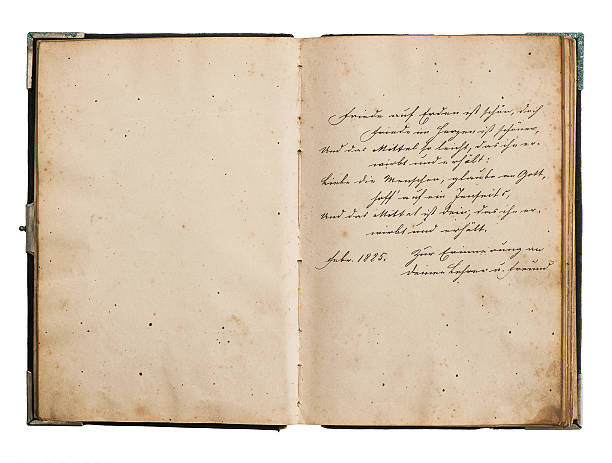 Friede auf Erden ist schön, doch
Friede im Herzen ist schöner,
Und das Mittel so leicht, das ihn er-
wirbt und erhält:
Liebe die Menschen, glaube an Gott,
hoff' auf ein Jenseits,
Und das Mittel ist dein, das ihn er-
wirbt und erhält.
Febr. 1885. Zur Erinnerung an
Deinen Lehrer u. Freund